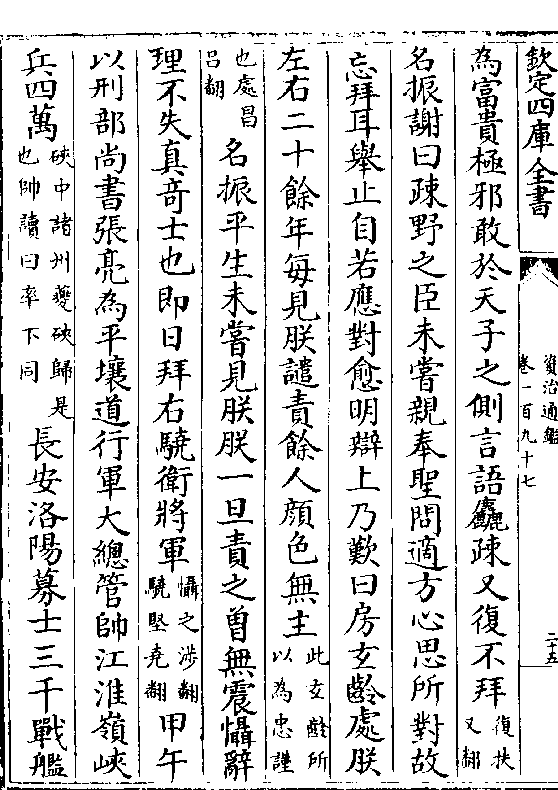 欽定四庫全書
資治通鑑
卷一百九十七
二十五
為富貴極邪敢於天子之側言語麤疎又復不拜復扶又翻
名振謝曰疎野之臣未嘗親奉聖問適方心思所對故
忘拜耳舉止自若應對愈明辯上乃歎曰房玄齡處朕
左右二十餘年每見朕譴責餘人顔色無主此玄齡所以為忠謹
也處昌吕翻名振平生未嘗見朕朕一旦責之曾無震懾辭
理不失真竒士也即日拜右驍衛將軍懾之涉翻驍堅堯翻甲午
以刑部尚書張亮為平壤道行軍大總管帥江淮嶺峽
兵四萬硤中諸州夔硤歸是也帥讀曰率下同長安洛陽募士三千戰艦